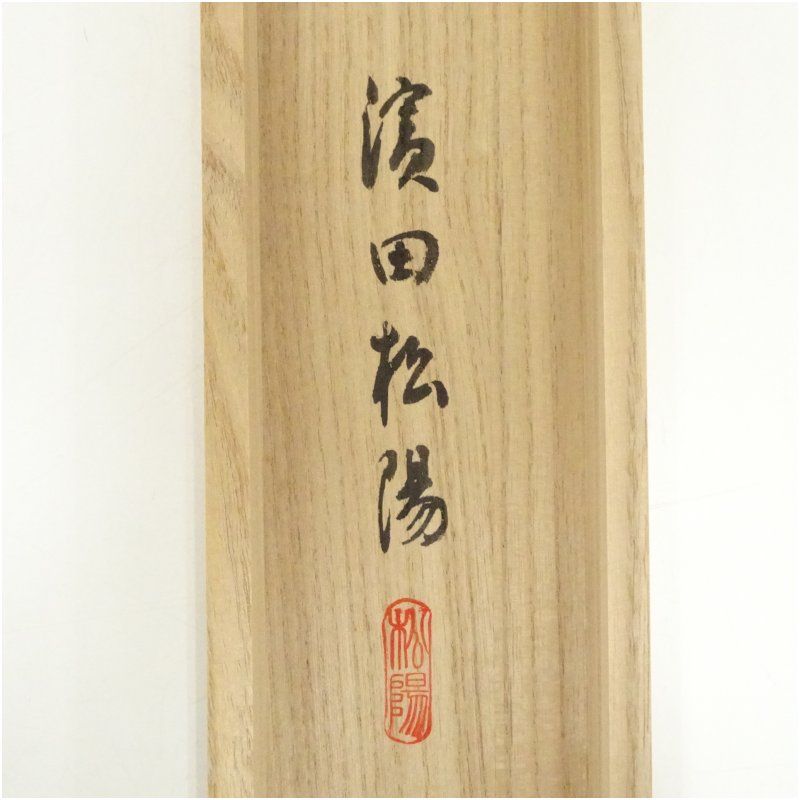 濱田松陽
松陽